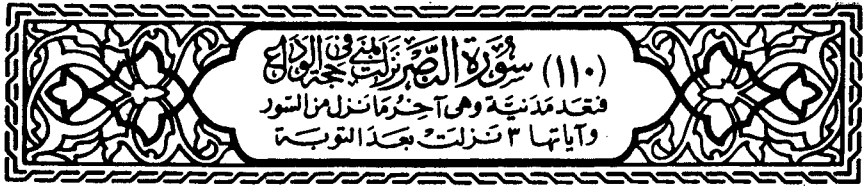 (١١٠) سُورَةِ النَّصْرِ نَزَلَتْ بِمِنًى فِي حَجَّةِ الْوَدَاعِ
فتعد مدنية وهى آخِرُ مَا نزل من السّور
وآياتها ٣ نزلت بعد التوبة